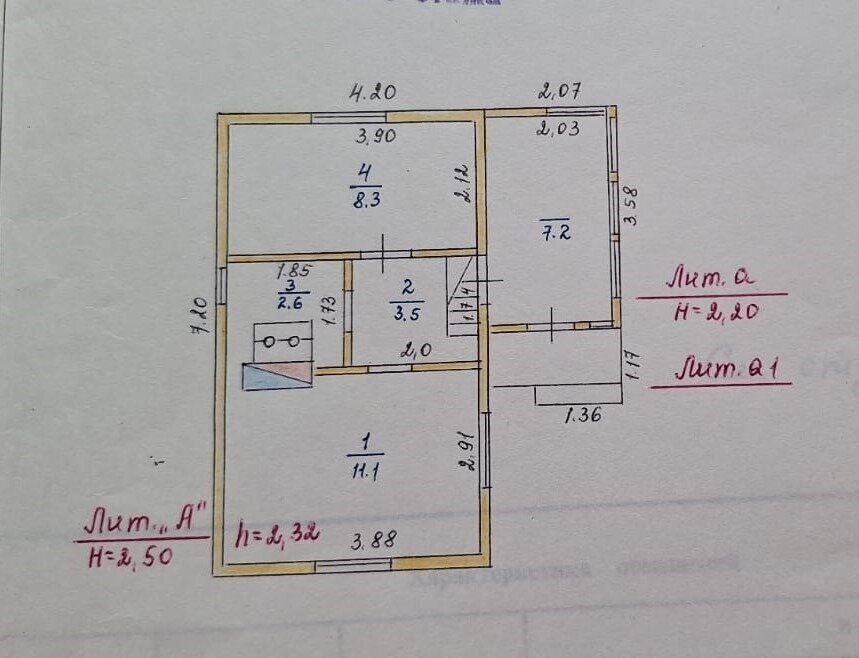 4.20
2,07
3,90
2,03
4
8.3
2.12
3.58
7.2
1.85
3
2.6
1.73
2
3.5
1.74
7.20
Лит. а
H=2,20
2,0
1.17
Лит. а1
1.36
1
11.1
2.91
Лит. „А"
H=2,50
h=2,32
3.88
Характеристика